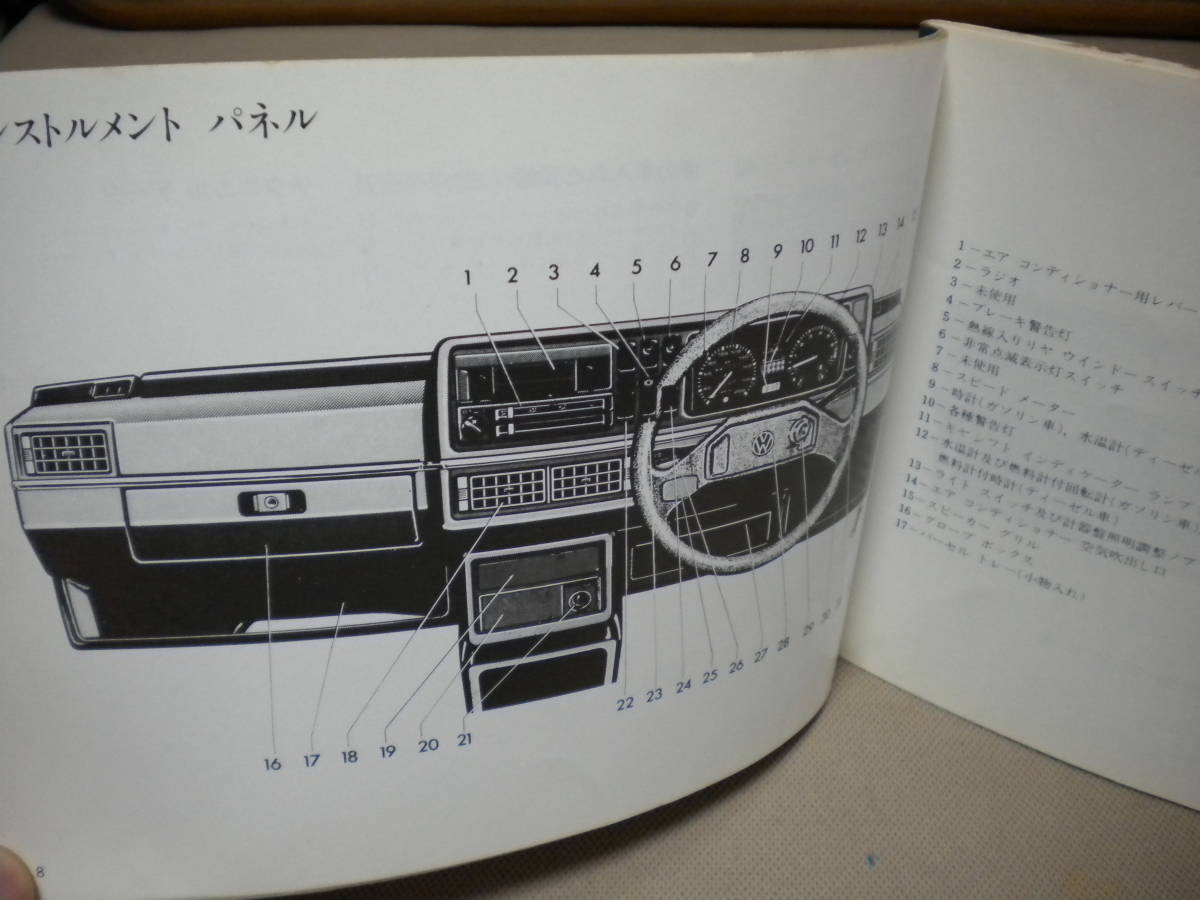 ンストルメント パネル
1 2 3 4 5 6 7 8 9 10 11 12 13 14
16 17 18 19 20 21 22 23 24 25 26 27 28 29 30
8
1－エア コンディショナー用レバー
2－ラジオ
3－未使用
4－ブレーキ警告灯
5－熱線入りリヤ ウインドー スイッチ
6－非常点滅表示灯スイッチ
7－未使用
8－スピード メーター
9－時計(ガソリン車)、水温計(ディーゼ
10－各種警告灯
11－ギヤシフト インディケーター ランプ
12－水温計及び燃料計付回転計(ガソリン車)
燃料計付時計(ディーゼル車)
13－ライト スイッチ及び計器盤照明調整ノブ
14－エア コンディショナー 空気吹出し口
15－スピーカー グリル
16－グローブ ボックス
17－パーセル トレー(小物入れ)